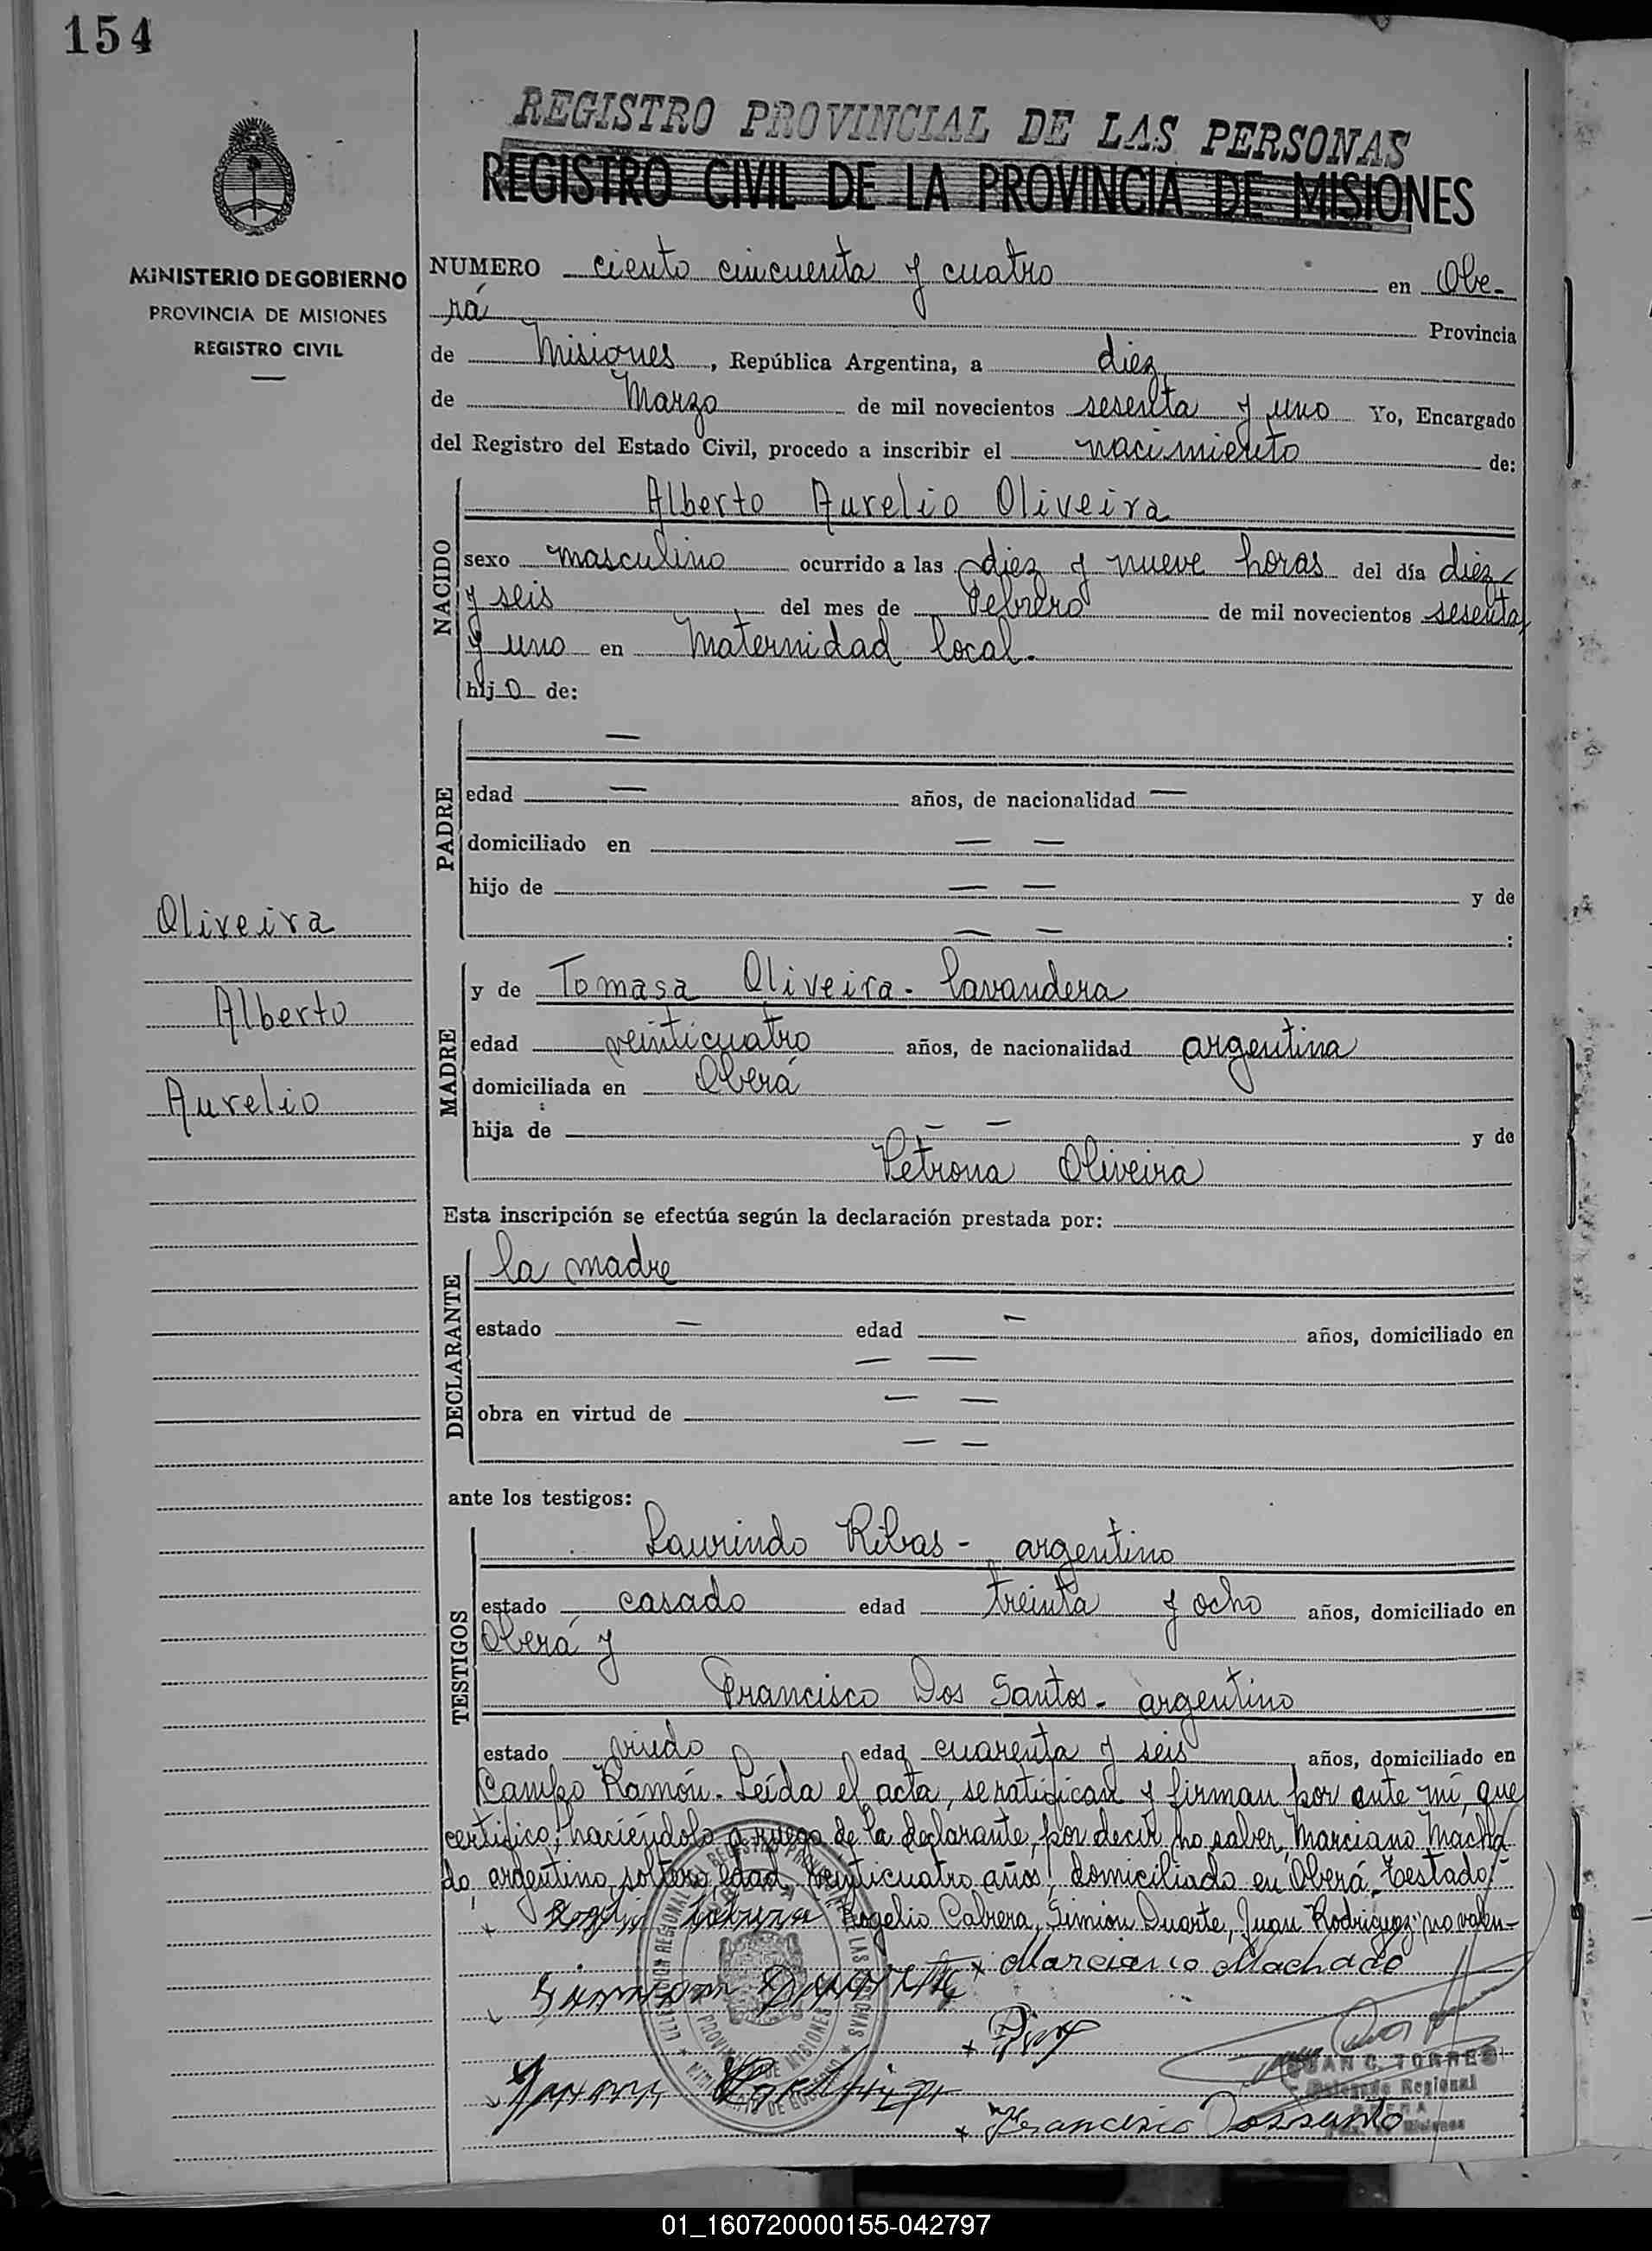 154
REGISTRO PROVINCIAL DE LAS PERSONAS
REGISTRO CIVIL DE LA PROVINCIA DE MISIONES
MINISTERIO DE GOBIERNO
PROVINCIA DE MISIONES
REGISTRO CIVIL
NUMERO ciento cincuenta y cuatro en Obe-
rá Provincia
de Misiones, República Argentina, a diez
de Marzo de mil novecientos sesenta y uno Yo, Encargado
del Registro del Estado Civil, procedo a inscribir el nacimiento de:
NACIDO
Alberto Aurelio Oliveira
sexo masculino ocurrido a las diez y nueve horas del día diez
y seis del mes de Febrero de mil novecientos sesenta
y uno en Maternidad local.
hijo de:
PADRE
—
edad — años, de nacionalidad —
domiciliado en — —
hijo de — — y de
— — :
Oliveira
Alberto
Aurelio
MADRE
y de Tomasa Oliveira - Lavandera
edad veinticuatro años, de nacionalidad argentina
domiciliada en Oberá
hija de — — y de
Petrona Oliveira
Esta inscripción se efectúa según la declaración prestada por:
DECLARANTE
la madre
estado — edad — años, domiciliado en
— —
obra en virtud de — —
— —
ante los testigos:
TESTIGOS
Laurindo Ribas - argentino
estado casado edad treinta y ocho años, domiciliado en
Oberá y
Francisco Dos Santos - argentino
estado viudo edad cuarenta y seis años, domiciliado en
Campo Ramón. Leída el acta, se ratifican y firman por ante mí, que
certifico; haciéndolo a ruego de la declarante, por decir no saber, Marciano Macha-
do, argentino, soltero, edad, veinticuatro años, domiciliado en Oberá. Testado:
Rogelio Cabrera, Simion Duarte, Juan Rodriguez: no valen-
Marciano Machado
Duarte
JUAN C. TORRES
Delegado Regional
OBERA
Misiones
Francisco Dossanto
01_160720000155-042797